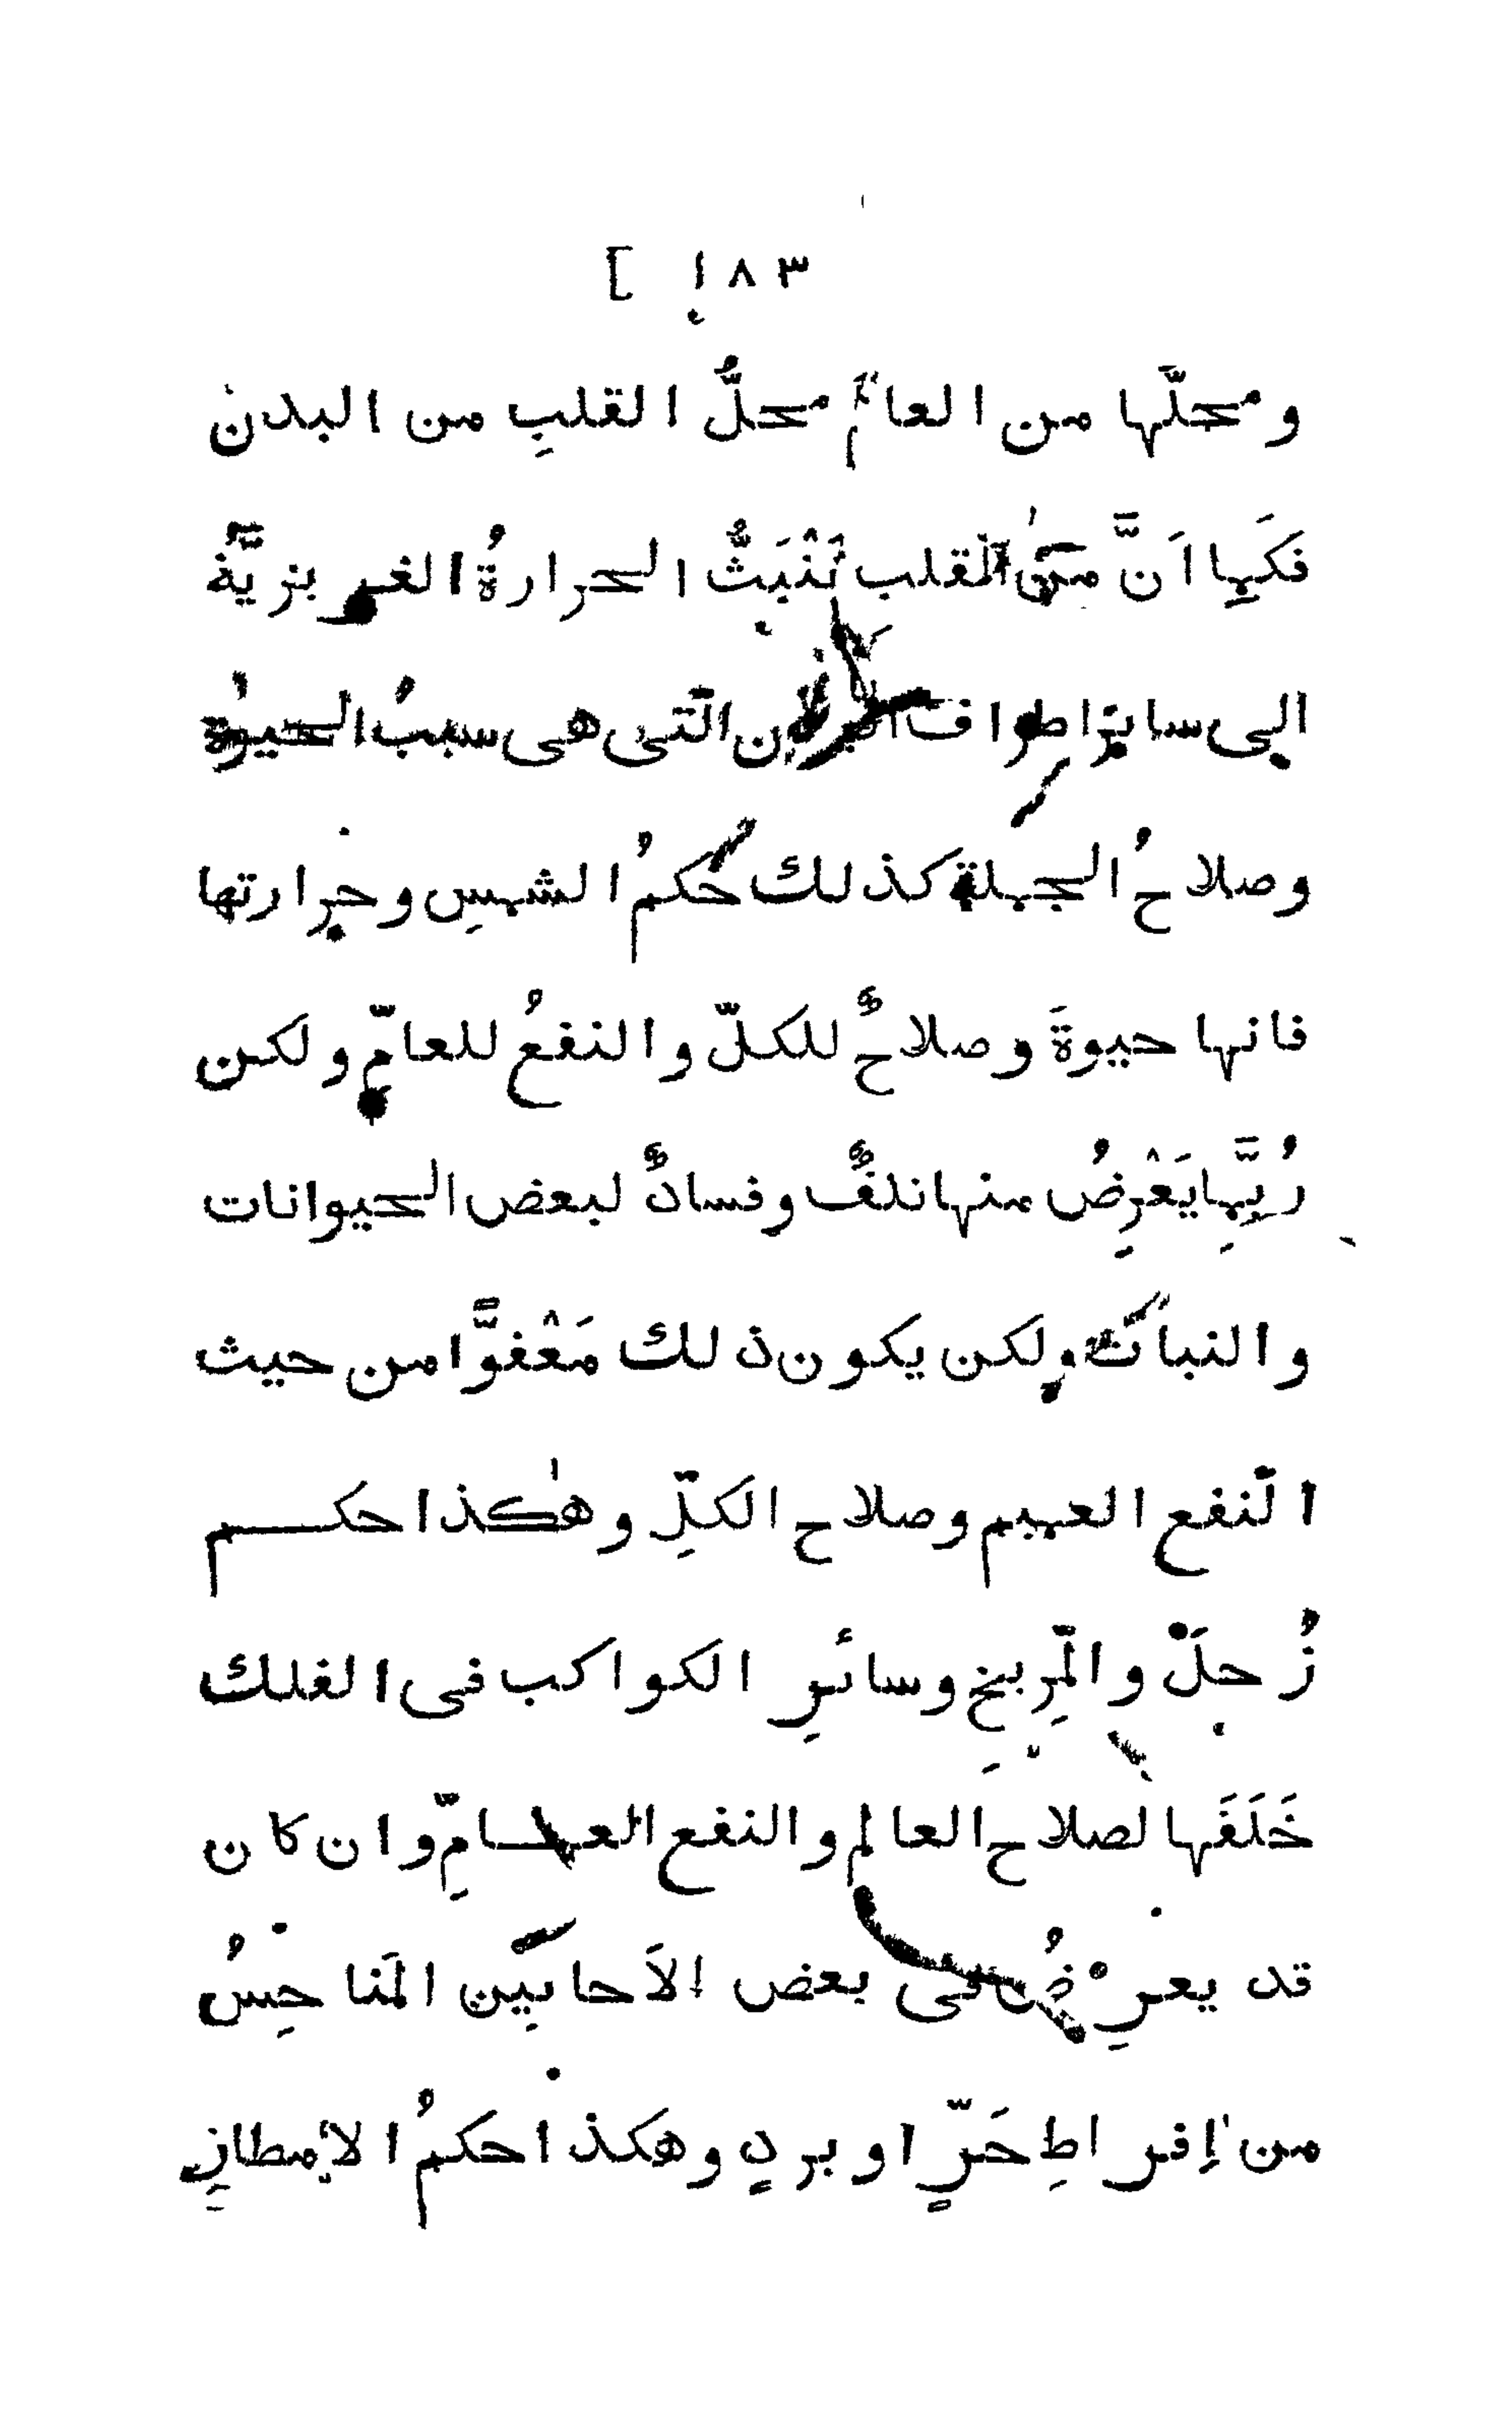 ١٨٣ ]
ومحلّها من العالم محلُّ القلبِ من البدن
فكَما اَنَّ من القلب تَنْبَثُّ الحرارةُ الغريزيَّةُ
الى سائر اطراف البدن الّتى هى سببُ الحيٰوة
وصلاحُ الجبلة كذلك حُكمُ الشمسِ وحرارتها
فانها حيوةَ وصلاحٌ للكلّ والنفعُ للعامّ ولكن
رُبَّما يَعْرِضُ منها تلفٌ وفسادٌ لبعض الحيوانات
والنبات ولكن يكون ذلك مَعْفوًّا من حيث
النّفع العميم وصلاح الكلِّ وهٰكذا حكم
زُحلَ والمّرِيخِ وسائرِ الكواكب فى الفلك
خَلَقَها لصلاح العالم والنفع العامِّ وان كان
قد يعرِضُ فى بعض الاَحايِين المَناحِسُ
من اِفراطِ حَرٍّ او بردٍ وهكذا حكمُ الاَمطارِ